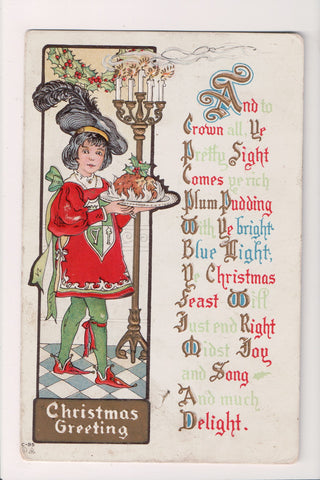 And to
Crown all, Ye
Pretty Sight
Comes ye rich
Plum Pudding
With Ye bright
Blue Light;
Ye Christmas
Feast Will
Just end Right
Midst Joy
and Song
And much
Delight.
Christmas
Greeting